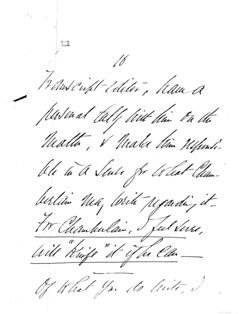 10
Transcript editor, have a
personal talk with him on the
matter, & make him responsi-
ble to a sense for what Cham-
berlain may write regarding it.
For Chamberlain, I feel sure,
will "Knife" it if he can —
of what you do write, I